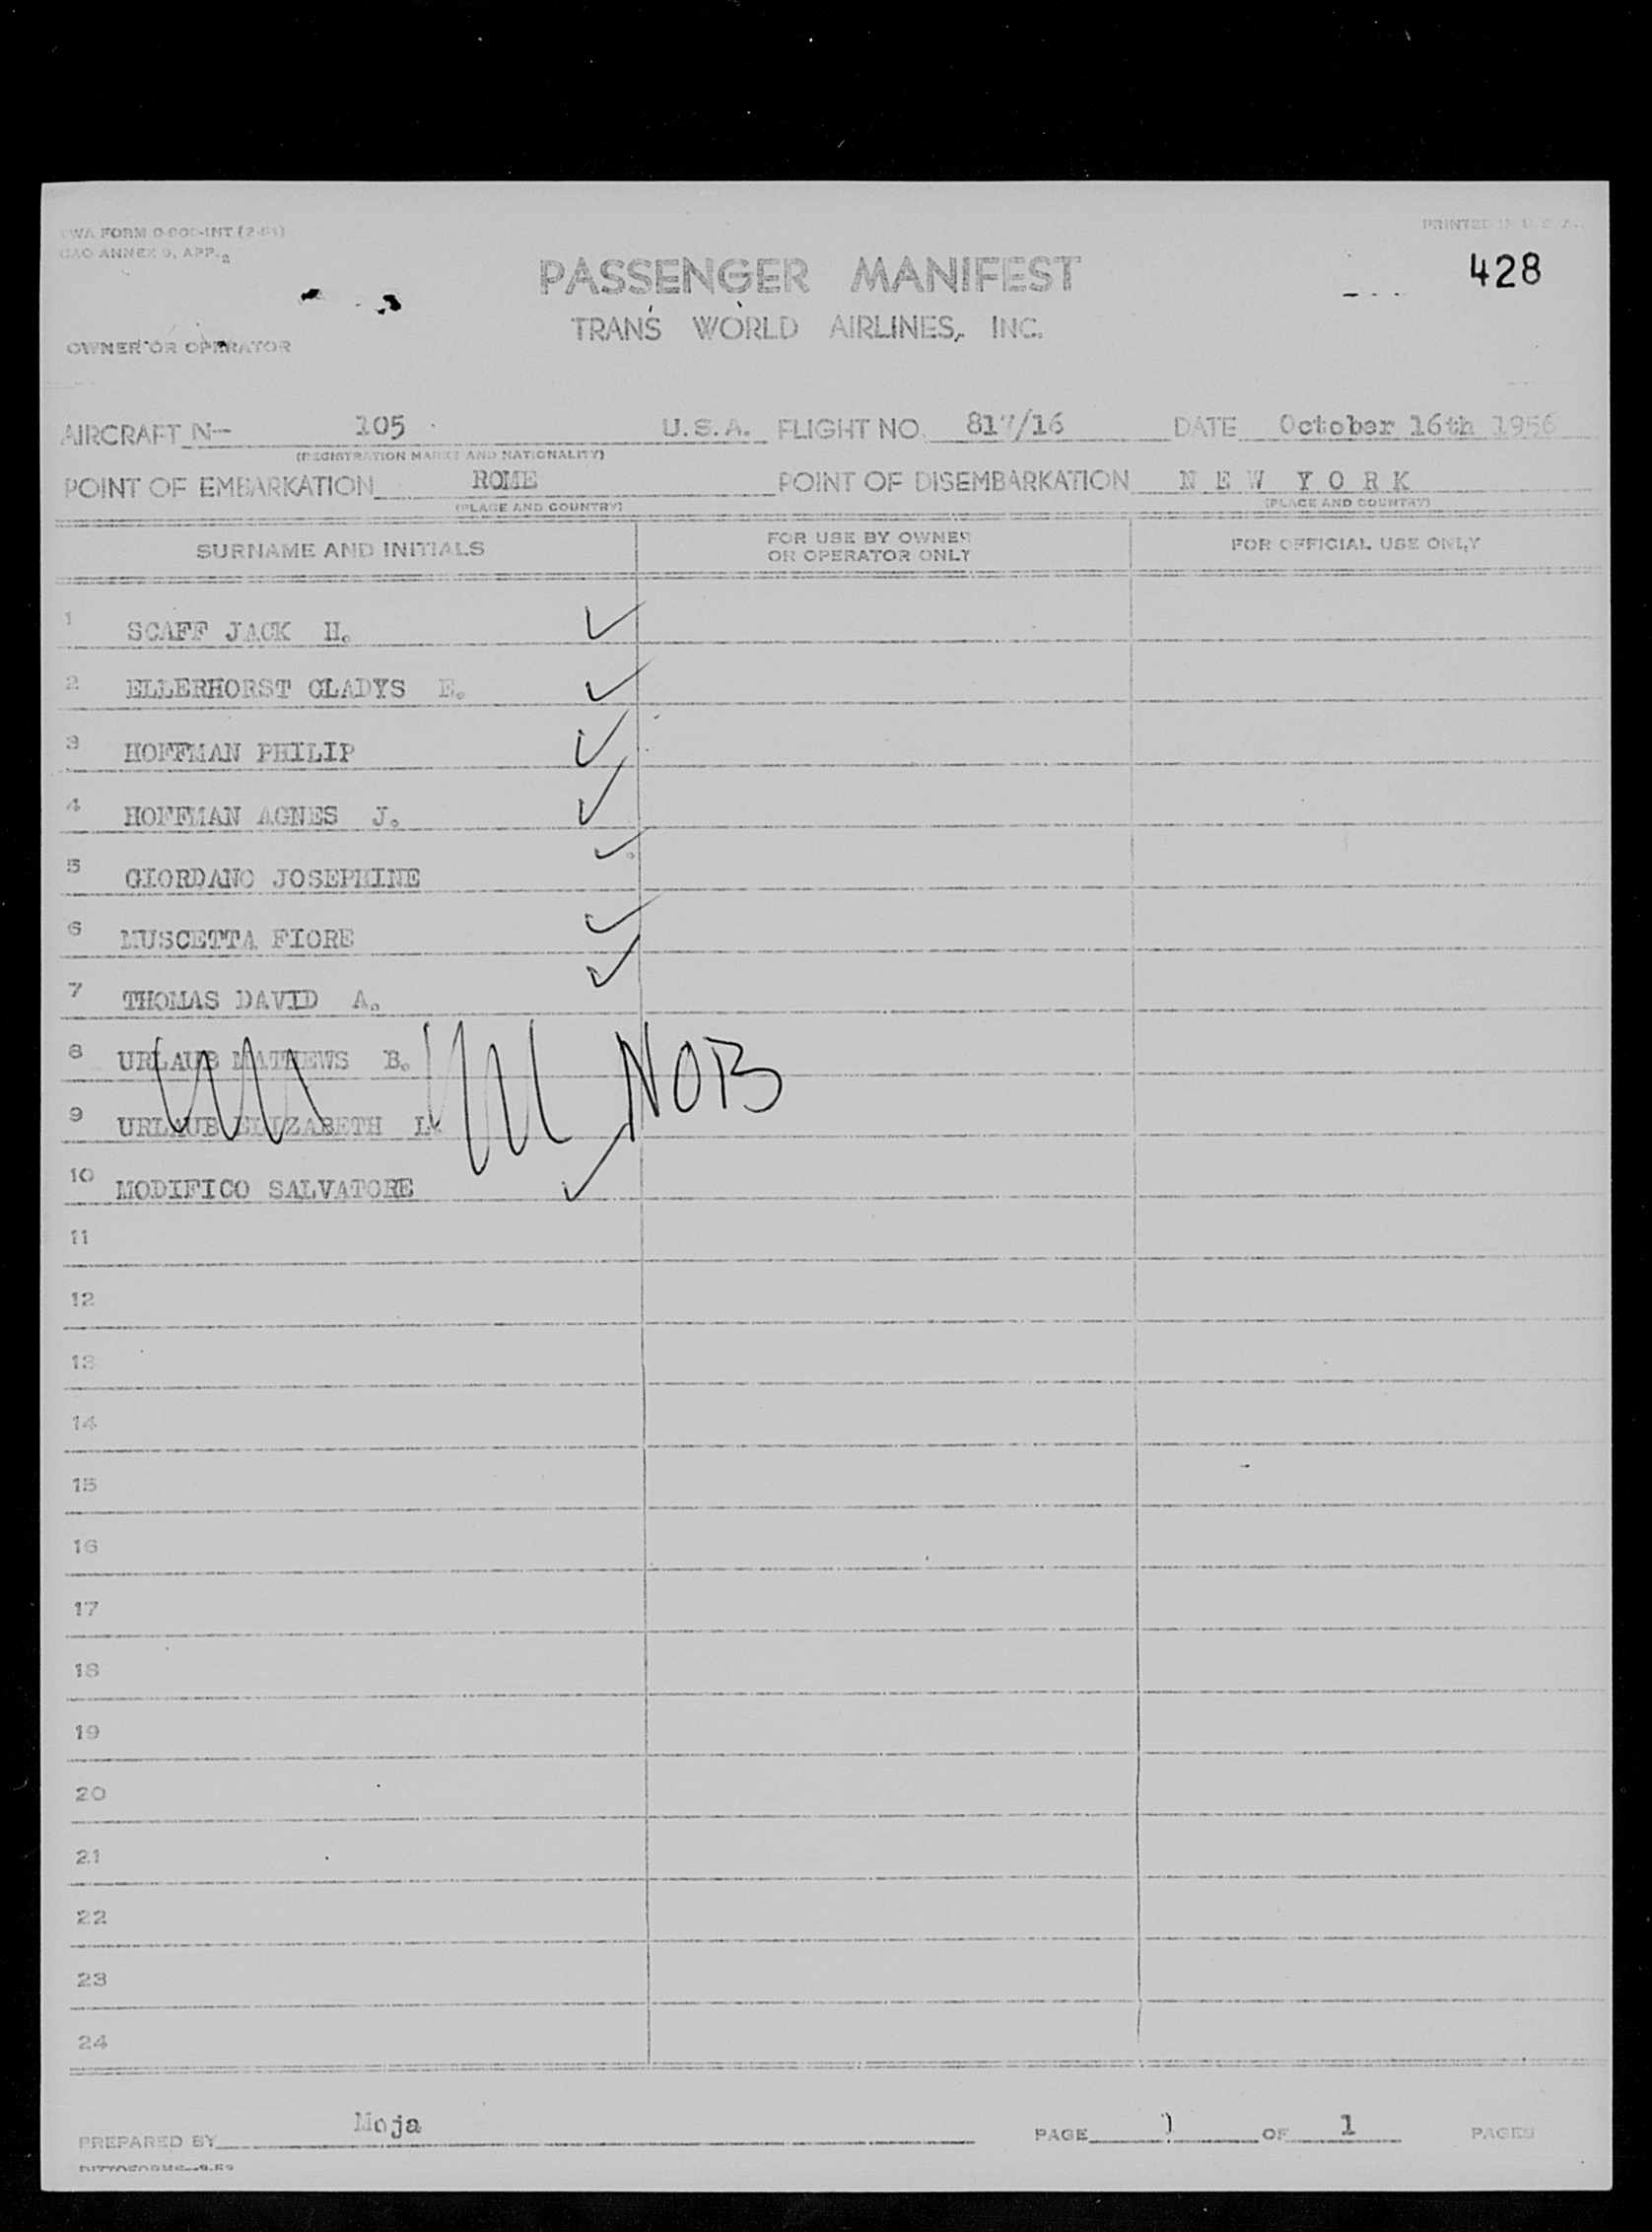 TWA FORM O-800-INT (2-51)
PRINTED IN U. S. A.
ICAO ANNEX 9, APP. 2
PASSENGER MANIFEST
428
TRANS WORLD AIRLINES, INC.
OWNER OR OPERATOR
AIRCRAFT N- 105 U.S.A. FLIGHT NO. 817/16 DATE October 16th 1956
(REGISTRATION MARKS AND NATIONALITY)
POINT OF EMBARKATION ROME POINT OF DISEMBARKATION N E W Y O R K
(PLACE AND COUNTRY) (PLACE AND COUNTRY)
SURNAME AND INITIALS FOR USE BY OWNER OR OPERATOR ONLY FOR OFFICIAL USE ONLY
1 SCAFF JACK H. ✓
2 ELLERHORST GLADYS E. ✓
3 HOFFMAN PHILIP ✓
4 HOFFMAN AGNES J. ✓
5 GIORDANO JOSEPHINE ✓
6 MUSCETTA FIORE ✓
7 THOMAS DAVID A. ✓
8 URLAUB MATHEWS B. NOB
9 URLAUB ELIZABETH L.
10 MODIFICO SALVATORE ✓
11
12
13
14
15
16
17
18
19
20
21
22
23
24
PREPARED BY Moja PAGE 1 OF 1 PAGES
DITTOFORMS